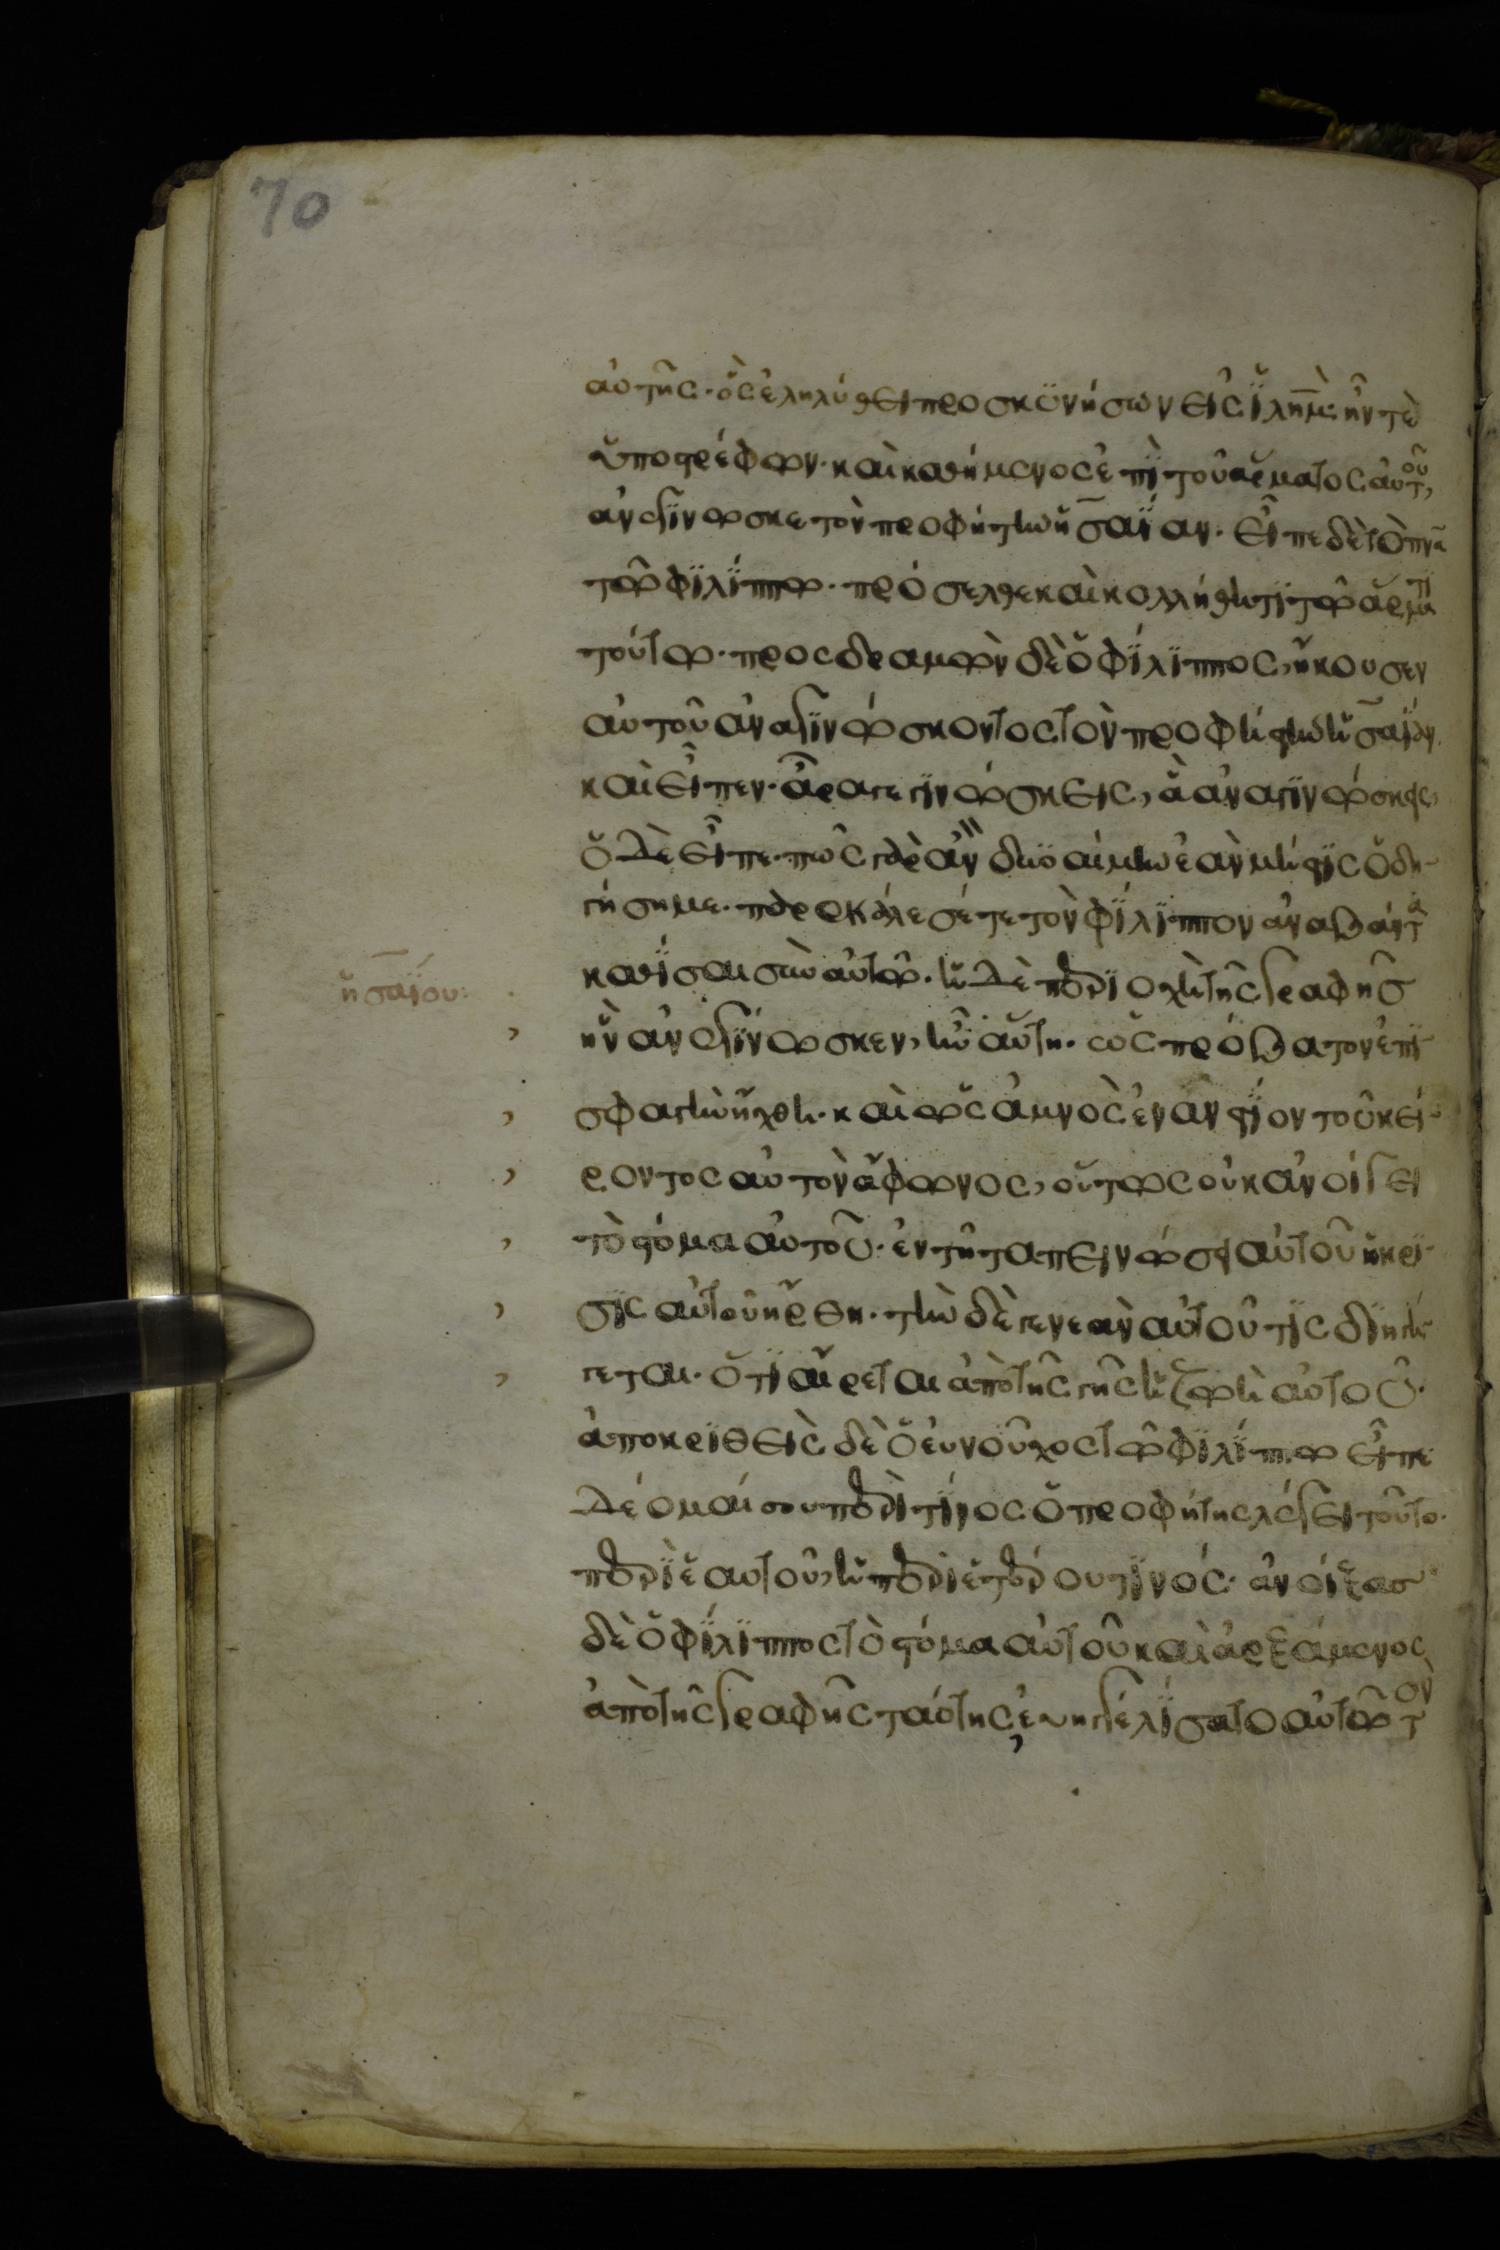 70
αὐτῆς· ὃς ἐληλύθει προσκϋνήσων εἰς ϊλημ· ἦν τὲ
ὑποστρέφων· καὶ καθήμενος ἐπῒ τοῦ ἅρματος αὐτοῦ,
ἀνεγΐνωσκε τὸν προφήτην ἡσαΐαν· εἶπε δὲ τὸ πνα
τῶ φϊλΐππω· πρόσελθε καὶ κολλήθητϊ τῶ ἅρματϊ
τούτω· προςδραμὼν δὲ ὁ φΐλϊππος, ἤκουσεν
αὐτοῦ ἀναγϊνώσκοντος τὸν προφήτην ἡσαΐαν,
καὶ εἶπεν· ἆρά γε γϊνώσκεις, ἃ ἀναγϊνώσκεις,
ὁ δὲ εἶπε· πῶς γὰρ ἂν δυναίμην ἐὰν μή τϊς ὁδη
γήση με· παρεκάλεσέ τε τὸν φΐλϊππον ἀναβάντα
καθΐσαι σὺν αὐτῶ· ἡ δὲ περϊοχὴ τῆς γραφῆς
ἡσαΐου:
ἣν ἀνεγΐνωσκεν, ἦν αὕτη· ὡς πρόβατον ἐπῒ
σφαγὴν ἤχθη· καὶ ὡς ἀμνὸς ἐναντΐον τοῦ κεί
ροντος αὐτὸν ἄφωνος, οὕτως οὐκ ἀνοίγει
τὸ στόμα αὐτοῦ· ἐν τῆ ταπεινώσει αὐτοῦ ἡ κρΐ
σϊς αὐτοῦ ἤρθη· τὴν δὲ γενεὰν αὐτοῦ τΐς δϊηγή
σεται· ὅτϊ αἴρεται ἀπὸ τῆς γῆς ἡ ζωὴ αὐτοῦ·
ἀποκρϊθεὶς δὲ ὁ εὐνοῦχος τῶ φϊλΐππω εἶπε·
δέομαί σου περὶ τΐνος ὁ προφήτης λέγει τοῦτο·
περῒ ἑαυτοῦ, ἢ περῒ ἑτέρου τϊνός· ἀνοίξας
δὲ ὁ φΐλϊππος τὸ στόμα αὐτοῦ καὶ ἀρξάμενος
ἀπὸ τῆς γραφῆς ταύτης, εὐηγγελΐσατο αὐτῶ τὸν